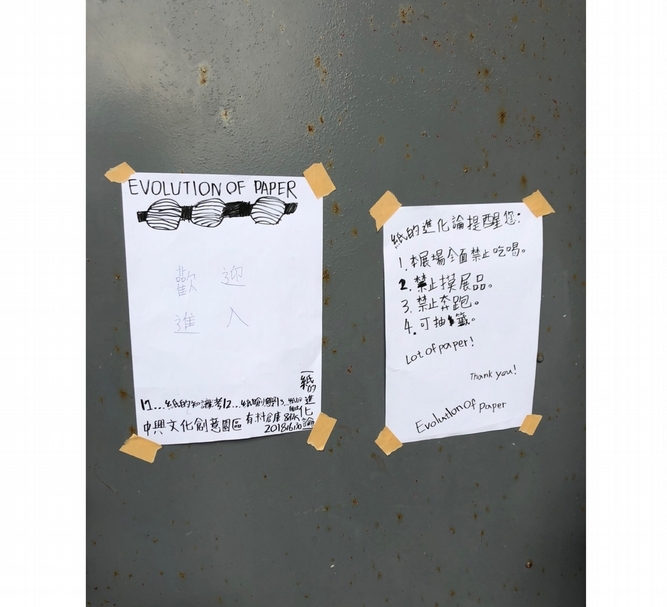 EVOLUTION OF PAPER
歡迎
進入
紙的進化論
中興文化創意園區
紙的進化論提醒您:
1.本展場全面禁止吃喝。
2.禁止摸展品。
3.禁止奔跑。
4.可抽籤。
Lot of paper!
Thank you!
Evolution Of Paper